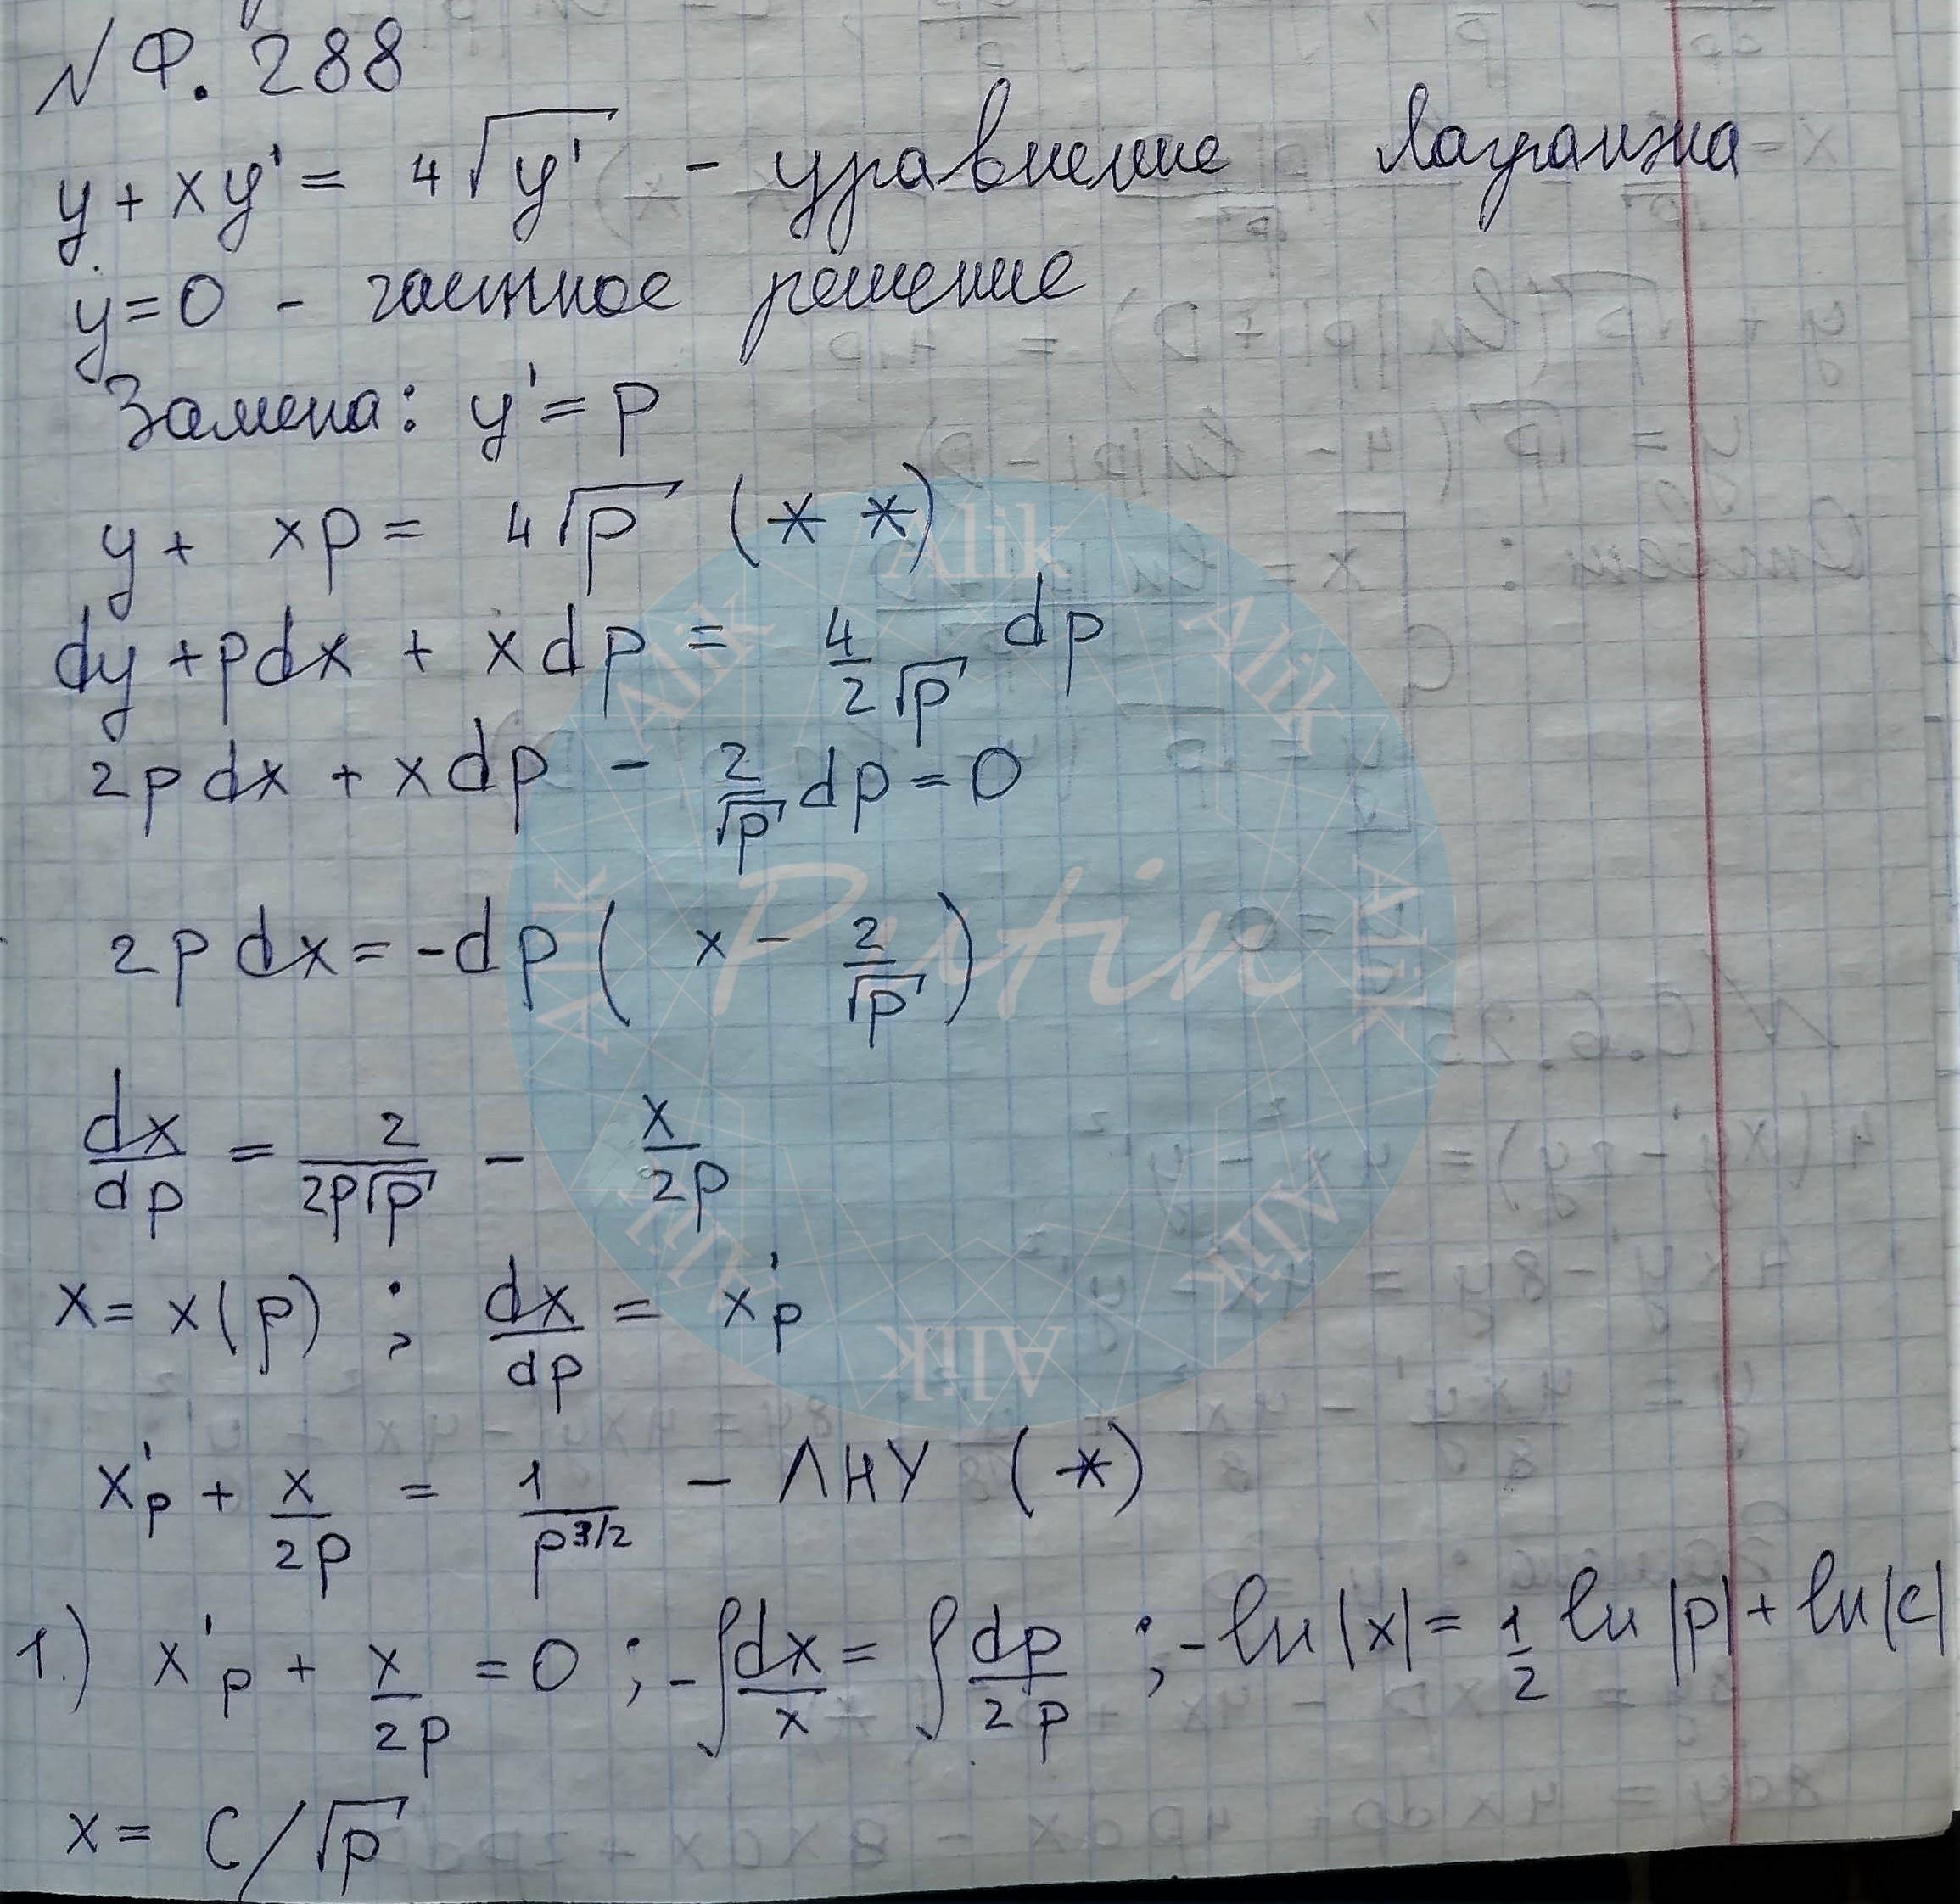 № Ф. 288
y + xy' = 4√y' - уравнение Лагранжа
y = 0 - частное решение
Замена: y' = p
y + xp = 4√p (* *)
dy + pdx + xdp = 4/(2√p) dp
2p dx + xdp - 2/√p dp = 0
2p dx = -dp( x - 2/√p )
dx/dp = 2/(2p√p) - x/2p
x = x(p) ; dx/dp = x'p
x'p + x/2p = 1/p^3/2 - ЛНУ (*)
1.) x'p + x/2p = 0 ; -∫dx/x = ∫dp/2p ; -ln|x| = 1/2 ln|p| + ln|c|
x = C/√p
Alik Alik Alik Alik Alik Alik Alik Alik
Putin